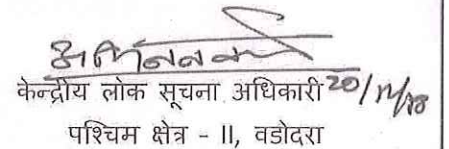 केन्द्रीय लोक सूचना अधिकारी
पश्चिम क्षेत्र - II, वडोदरा